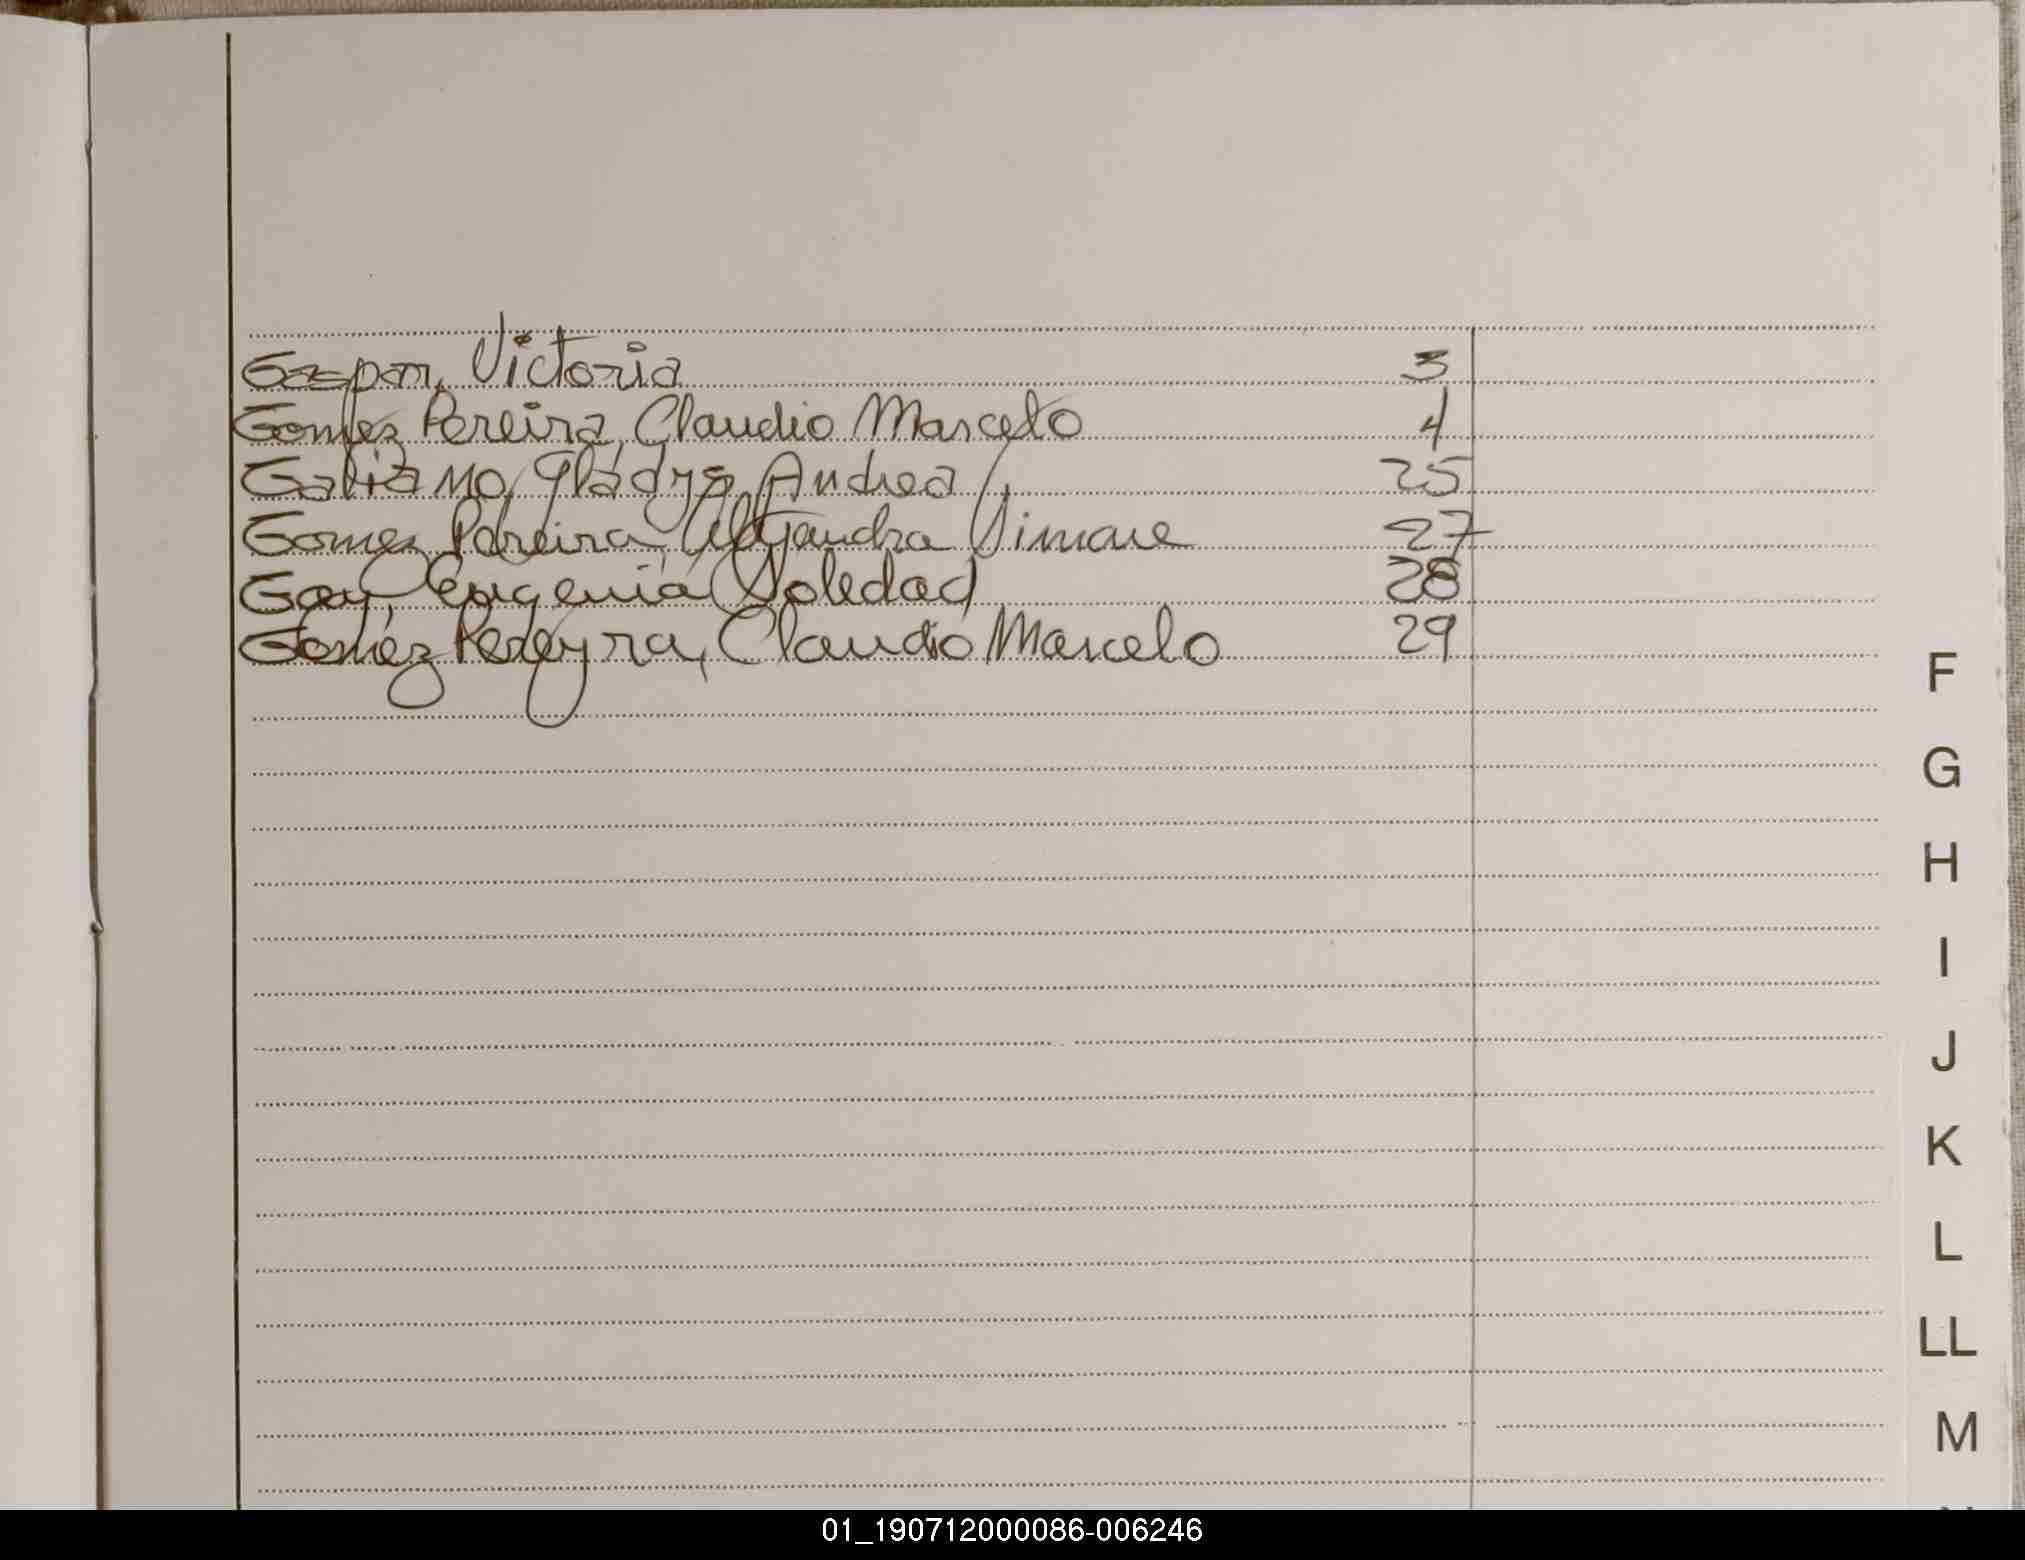 Gaspar, Victoria 3
Gomez Pereira, Claudio Marcelo 4
Galiano, Gladys Andrea 25
Gomez Pereira, Alejandra Simone 27
Gay, Eugenia Soledad 28
Gomez Pereyra, Claudio Marcelo 29
F
G
H
I
J
K
L
LL
M
01_190712000086-006246